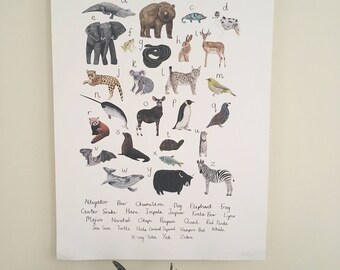 a b c d
e f g h i
j k l m
n o p q
r s t u
v w x y z
Alligator Bear Chameleon Dog Elephant Frog
Garter Snake Hare Impala Jaguar Koala Bear Lynx
Mejiro Narwhal Okapi Penguin Quail Red Panda
Sea Lion Turtle Ground Squirrel Vampire Bat Whale
X-ray Tetra Yak Zebra